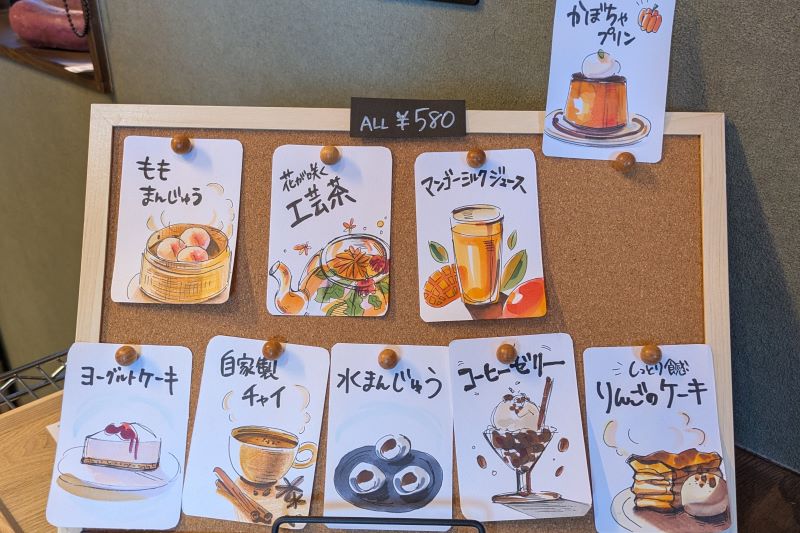 かぼちゃ
プリン
ALL ¥580
もも
まんじゅう
花が咲く
工芸茶
マンゴーミルクジュース
ヨーグルトケーキ
自家製
チャイ
水まんじゅう
コーヒーゼリー
しっとり食感
りんごのケーキ